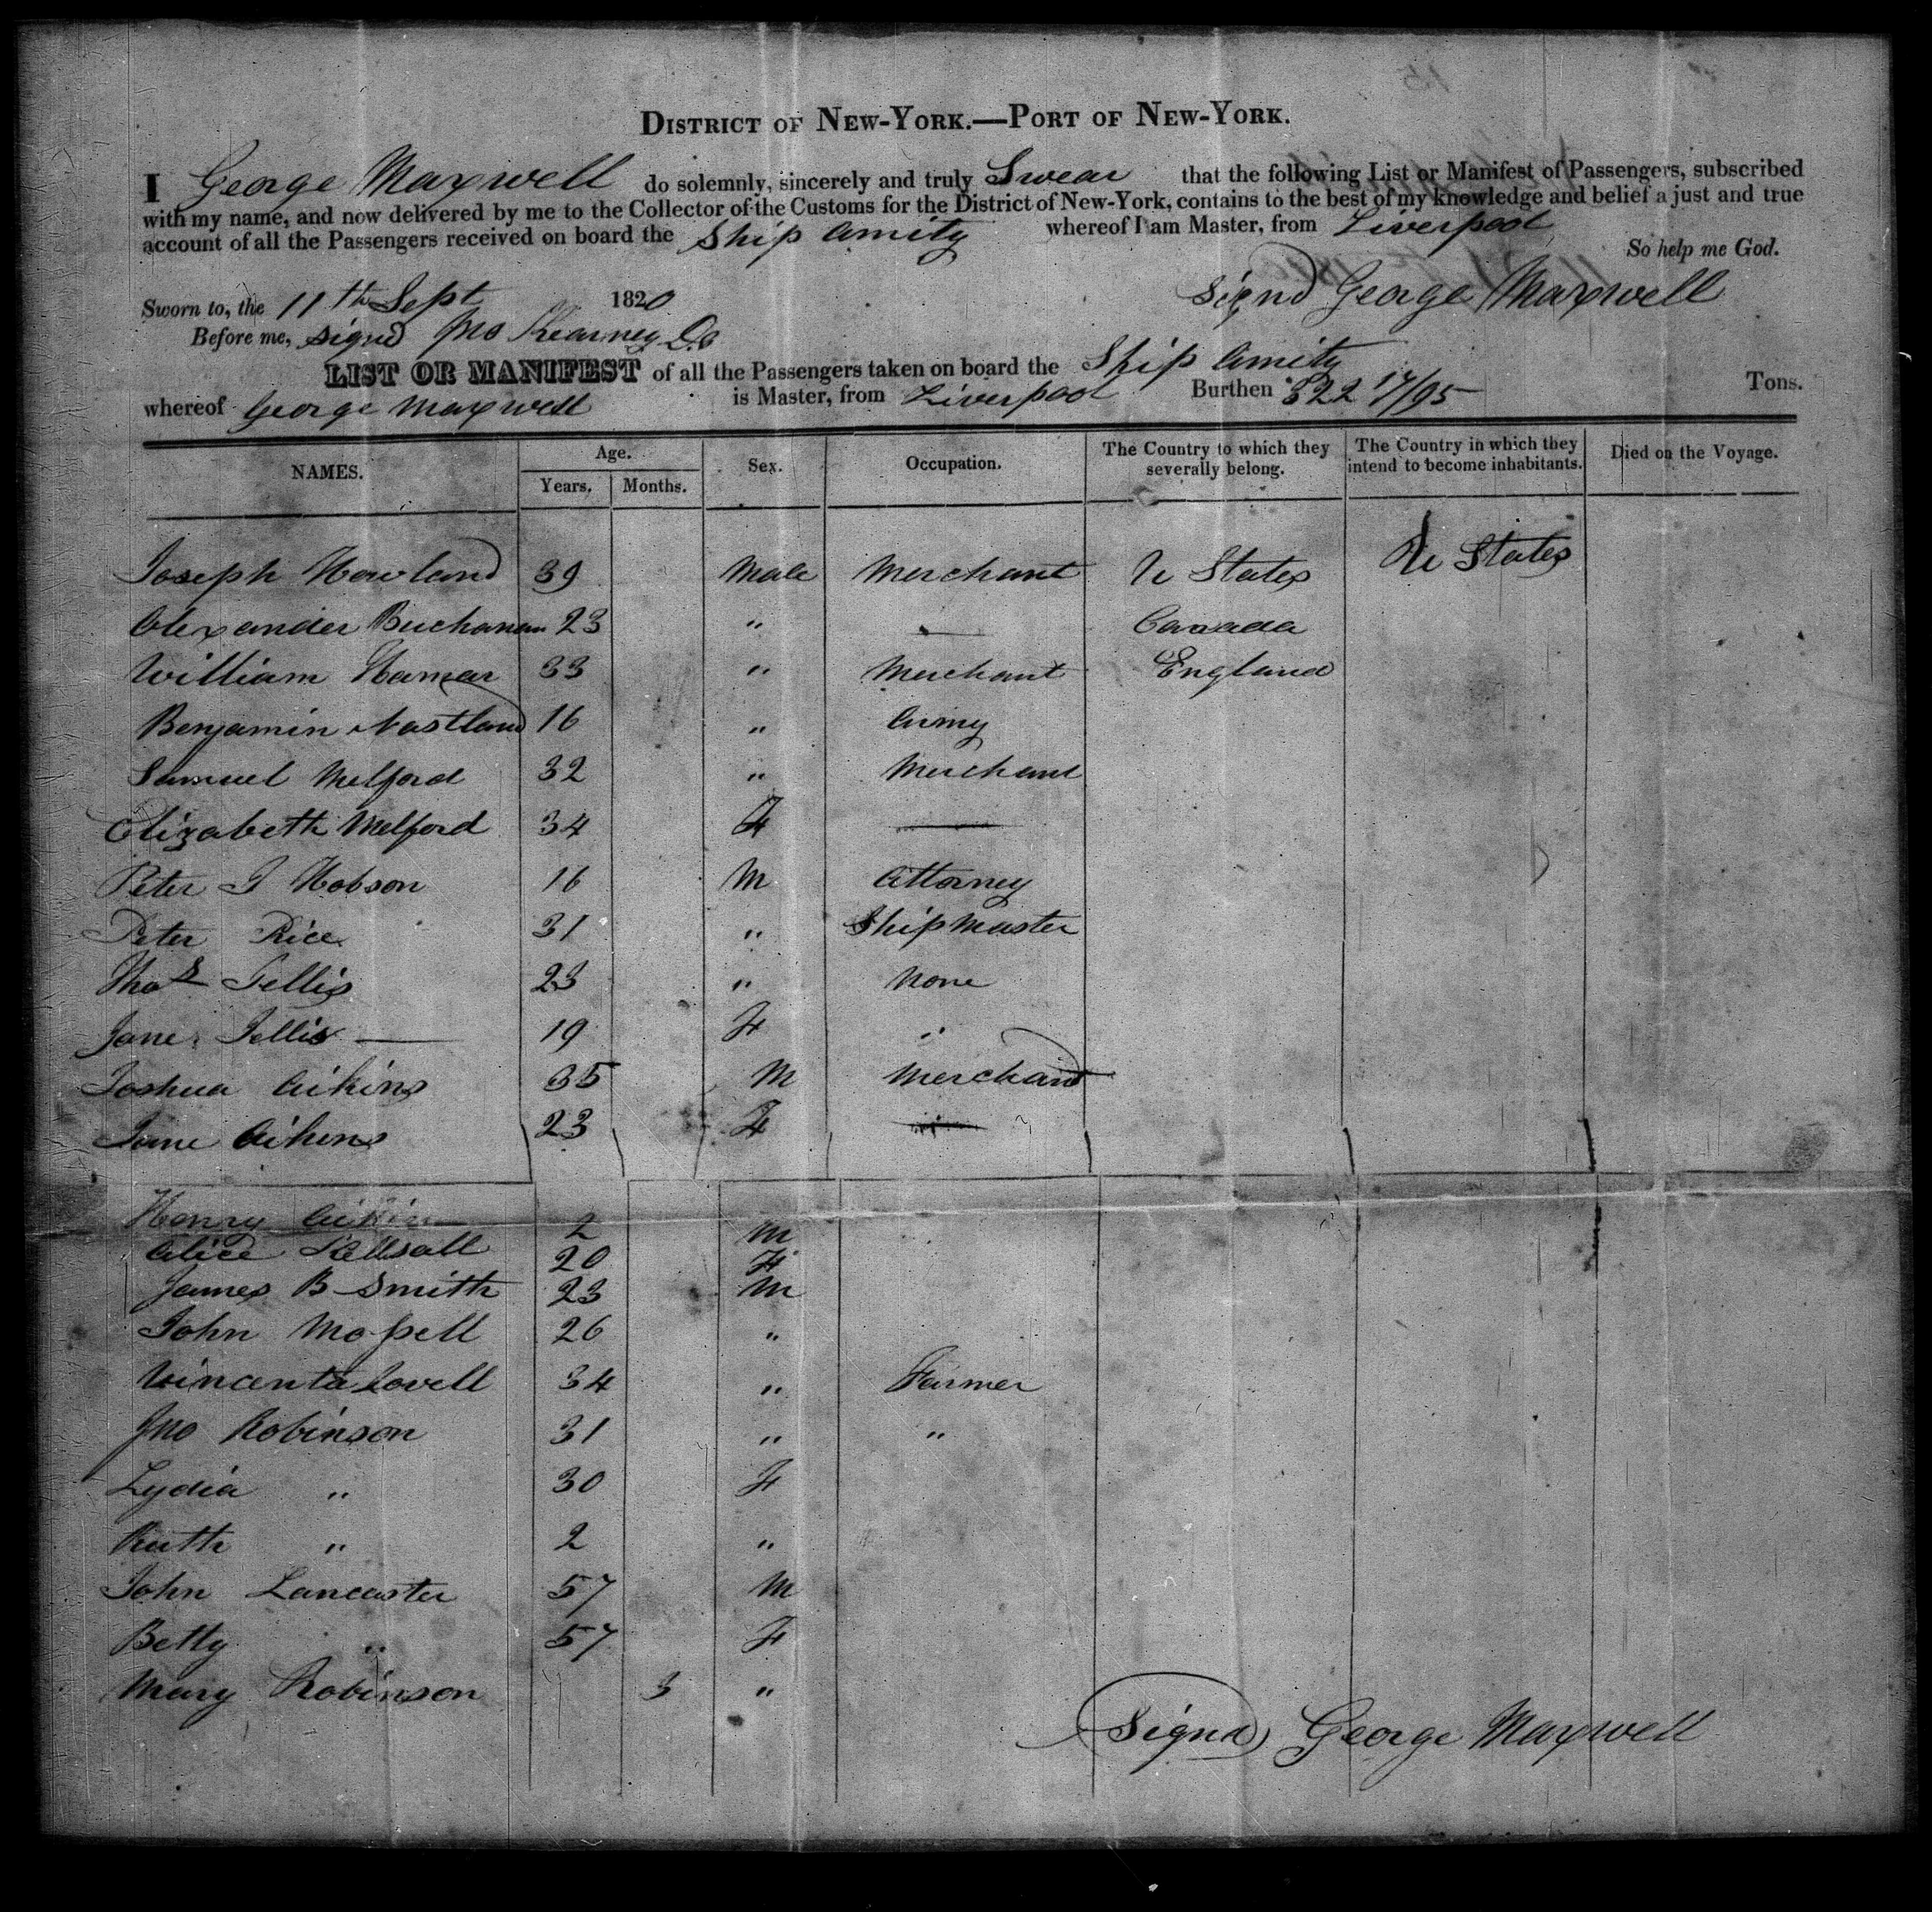 DISTRICT OF NEW-YORK.—PORT OF NEW-YORK.
I George Maxwell do solemnly, sincerely and truly Swear that the following List or Manifest of Passengers, subscribed
with my name, and now delivered by me to the Collector of the Customs for the District of New-York, contains to the best of my knowledge and belief a just and true
account of all the Passengers received on board the Ship Amity whereof I am Master, from Liverpool
So help me God.
Sworn to, the 11th Sept 1820 Signd George Maxwell
Before me, signd Jno Kearney
LIST OR MANIFEST of all the Passengers taken on board the Ship Amity
whereof George Maxwell is Master, from Liverpool Burthen 322 17/95 Tons.
NAMES. Age. Sex. Occupation. The Country to which they severally belong. The Country in which they intend to become inhabitants. Died on the Voyage.
Years. Months.
Joseph Howland 39 Male Merchant U States U States
Alexander Buchanan 23 " — Canada
William Hamar 33 " Merchant England
Benjamin 16 " Army
Samuel Melford 32 " Merchant
Elizabeth Melford 34 F —
Peter J Hobson 16 M Attorney
Peter Rice 31 " Shipmaster
Thos Tellis 23 " None
Jane Tellis — 19 F
Joshua Aikins 35 M Merchant
Jane Aikens 23 F —
Henry Aikin 2 M
Alice 20 F
James B Smith 23 M
John Mossell 26 "
Lovell 34 " Farmer
Jno Robinson 31 " "
Lydia " 30 F
Ruth " 2 "
John Lancaster 57 M
Betty " 57 F
Mary Robinson 3 "
Signd George Maxwell